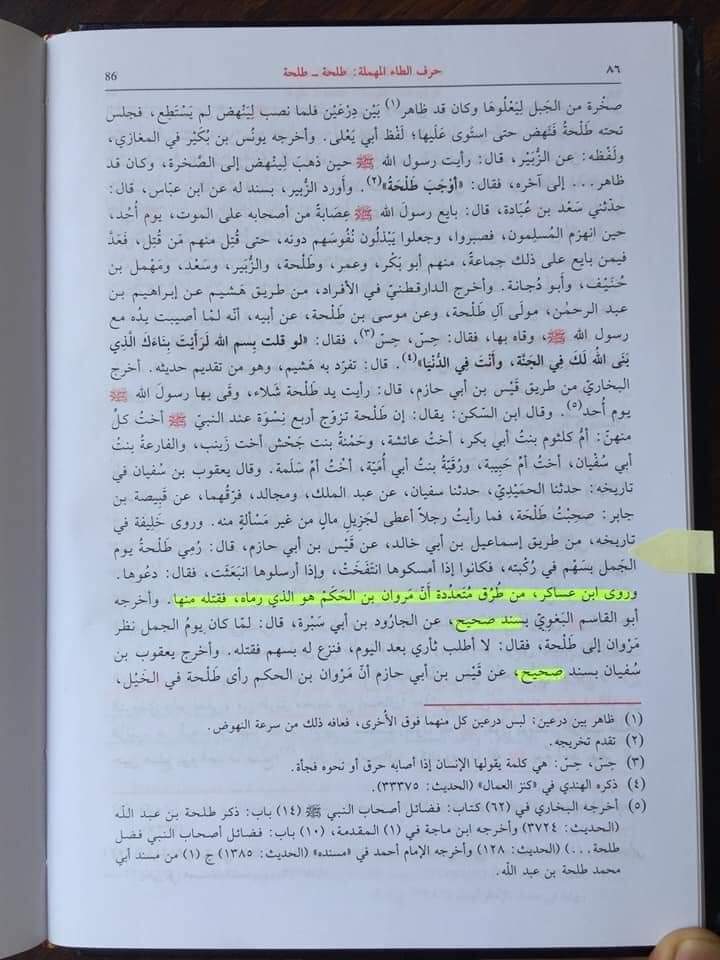 ٨٦ حرف الطاء المهملة: طلحة ـ طلحة 86
صخْرة من الجَبل لِيَعْلُوهَا وكان قد ظاهر(١) بَيْن دِرْعَيْن فلما نصب لِيَنْهض لم يَسْتَطِع، فجلس
تحته طَلْحةُ فنَهض حتى استَوى عَلَيها؛ لَفْظ أبي يَعْلى. وأخرجه يونس بن بُكَيْر في المغازي،
ولَفْظه: عن الزُّبَيْر، قال: رأيت رسول الله ﷺ حين ذهبَ لِينْهض إلى الصّخرة، وكان قد
ظاهر... إلى آخره، فقال: «أوْجَبَ طَلْحَةُ»(٢). وأورد الزبير، بسند له عن ابن عبّاس، قال:
حدّثني سَعْد بن عُبادة، قال: بايع رسولَ الله ﷺ عِصَابَةٌ من أصحابه على الموت، يوم أُحُد،
حين انهزم المُسلِمون، فصبروا، وجعلوا يَبْذلُون نُفُوسَهم دونه، حتى قُتِل منهم مَن قُتِل، فَعَدَّ
فيمن بايع على ذلك جماعةً، منهم أبو بَكْر، وعمر، وطَلْحة، والزُّبَيْر، وسَعْد، ومَهْمل بن
حُنَيْف، وأبو دُجانة. وأخرج الدارقطنيّ في الأفراد، من طريق هَشيم عن إبراهيم بن
عبد الرحمٰن، مولَى آلِ طَلْحة، وعن موسى بن طَلْحة، عن أبيه، أنّه لمّا أصيبت يدُه مع
رسول الله ﷺ، وقاه بها، فقال: حِسّ، حِسّ(٣)، فقال: «لو قلت بِسمِ الله لَرَأَيتَ بِنَاءَكَ الَّذِي
بَنَى اللهُ لَكَ فِي الجَنَّة، وأَنْتَ فِي الدُّنْيَا»(٤). قال: تفرّد به هَشيم، وهو من تقديم حديثه. أخرج
البخاريّ من طريق قَيْس بن أبي حازم، قال: رأيت يد طَلْحة شَلاء، وقَى بها رسولَ الله ﷺ
يوم أُحد(٥). وقال ابن السّكن: يقال: إن طَلْحة تزوّج أربع نِسْوَة عند النبيّ ﷺ أختُ كلّ
منهنّ: أمُّ كلثوم بنتُ أبي بكر، أختُ عائشة، وحَمْنَةُ بنت جَحْش أخت زَينب، والفارعةُ بنتُ
أبي سُفْيان، أختُ أمّ حَبِيبة، ورُقيّةُ بنتُ أبي أُميّة، أخْتُ أمّ سَلَمة. وقال يعقوب بن سُفيان في
تاريخه: حدثنا الحَمَيْدِيّ، حدثنا سفيان، عن عبد الملك، ومجالد، فرّقهما، عن قَبِيصة بن
جابر: صحِبْتُ طَلْحَة، فما رأيتُ رجلاً أعطى لجَزِيلِ مالٍ من غير مَسألةٍ منه. وروى خَلِيفة في
تاريخه، من طريق إسماعيل بن أبي خالد، عن قَيْس بن أبي حازم، قال: رُمِي طَلْحَةُ يوم
الجَمل بسَهْم في رُكْبته، فكانوا إذا أمسكوها انتفَخَتْ، وإذا أرسلوها انبَعَثَت، فقال: دَعُوها.
وروى ابن عساكر، من طُرُق مُتعدّدة أنّ مَروان بن الحَكَمْ هو الذي رماه، فقتله منها. وأخرجه
أبو القاسم البَغويّ بسند صحيح، عن الجارود بن أبي سَبْرة، قال: لمّا كان يوم الجمل نظر
مَرْوان إلى طَلْحة، فقال: لا أطلب ثأري بعد اليوم، فنزع له بسهم فقتله. وأخرج يعقوب بن
سُفيان بسند صحيح، عن قَيْس بن أبي حازم أنّ مَرْوان بن الحكم رأى طَلْحة في الخَيْل،
(١) ظاهر بين درعين: لبس درعين كل منهما فوق الأُخرى، فعافه ذلك من سرعة النهوض.
(٢) تقدم تخريجه.
(٣) حِسّ، حِسّ: هي كلمة يقولها الإنسان إذا أصابه حرق أو نحوه فجأة.
(٤) ذكره الهندي في «كنز العمال» (الحديث: ٣٣٣٧٥).
(٥) أخرجه البخاري في (٦٢) كتاب: فضائل أصحاب النبي ﷺ (١٤) باب: ذكر طلحة بن عبد اللّه
(الحديث: ٣٧٢٤) وأخرجه ابن ماجة في (١) المقدمة، (١٠) باب: فضائل أصحاب النبي فضل
طلحة...) (الحديث: ١٢٨) وأخرجه الإمام أحمد في «مسنده» (الحديث: ١٣٨٥) ج (١) من مسند أبي
محمد طلحة بن عبد اللّه.